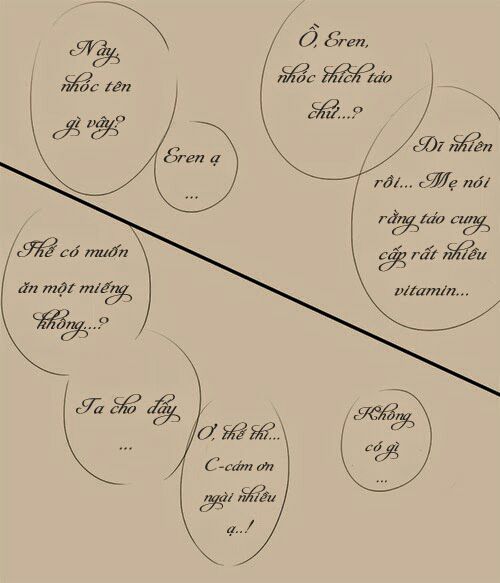 Này,
nhóc tên
gì vậy?
Eren ạ
...
Ồ, Eren,
nhóc thích táo
chứ...?
Dĩ nhiên
rồi... Mẹ nói
rằng táo cung
cấp rất nhiều
vitamin...
Thế có muốn
ăn một miếng
không...?
Ta cho đấy
...
Ơ, thế thì...
C-cám ơn
ngài nhiều
ạ..!
Không
có gì
...